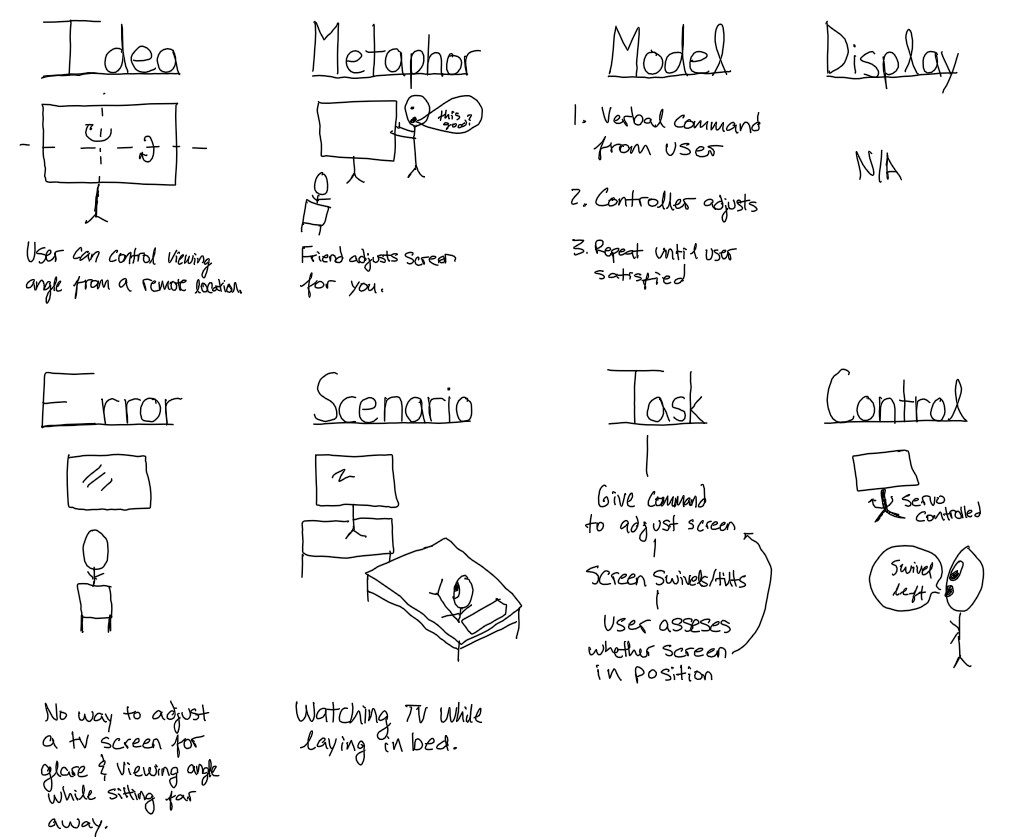 Idea
User can control viewing
angle from a remote location.
Metaphor
this
good?
Friend adjusts screen
for you.
Model
1. Verbal command
from user
2. Controller adjusts
3. Repeat until user
satisfied
Display
N/A
Error
No way to adjust
a tv screen for
glare & viewing angle
while sitting far
away.
Scenario
Watching TV while
laying in bed.
Task
Give command
to adjust screen
Screen swivels/tilts
User asseses
whether screen
in position
Control
Servo
controlled
Swivel
left